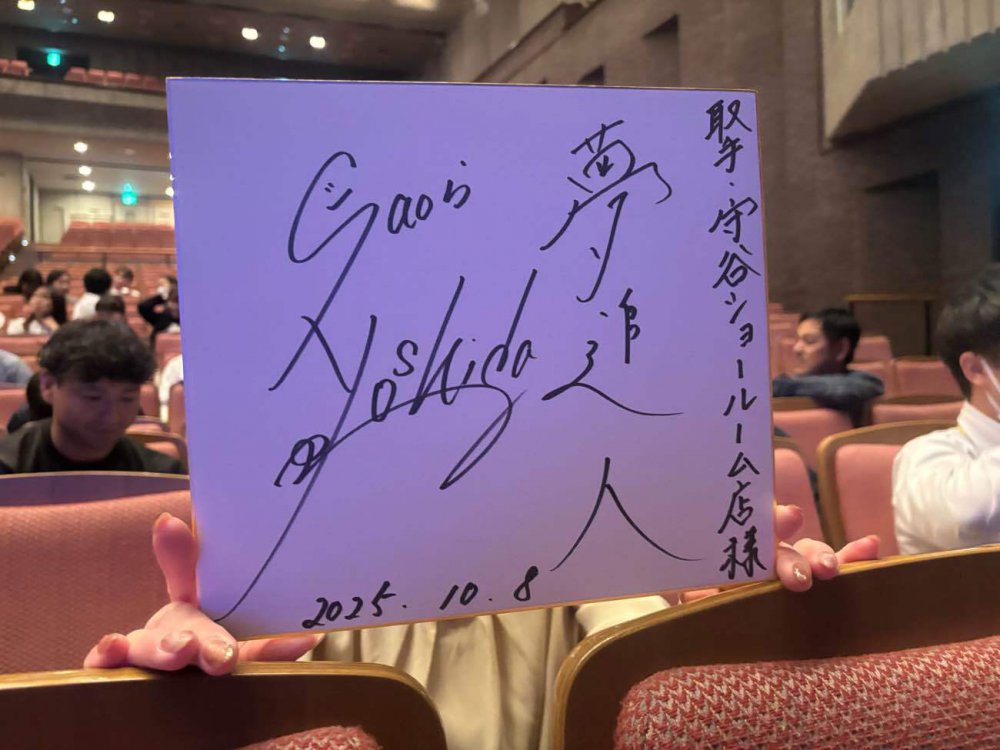 取手・守谷ショールーム店様
夢追人
Saori
Yoshida
2025. 10. 8